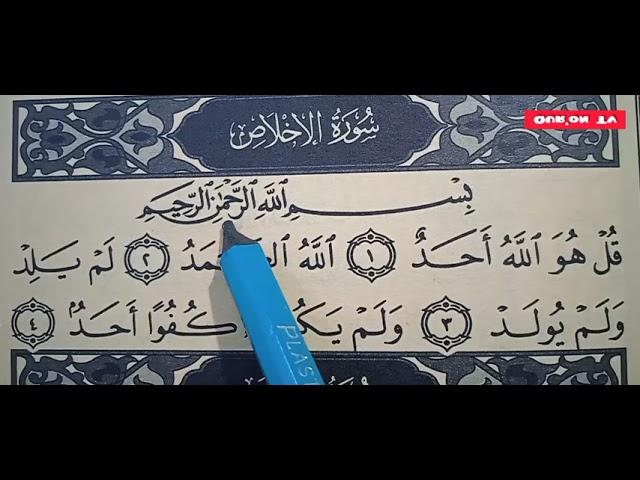 سُورَةُ الإِخْلَاصِ
بِسْمِ ٱللَّهِ ٱلرَّحْمَٰنِ ٱلرَّحِيمِ
قُلْ هُوَ ٱللَّهُ أَحَدٌ ١ ٱللَّهُ ٢ لَمْ يَلِدْ
وَلَمْ يُولَدْ ٣ وَلَمْ كُفُوًا أَحَدٌۢ ٤
PLAST